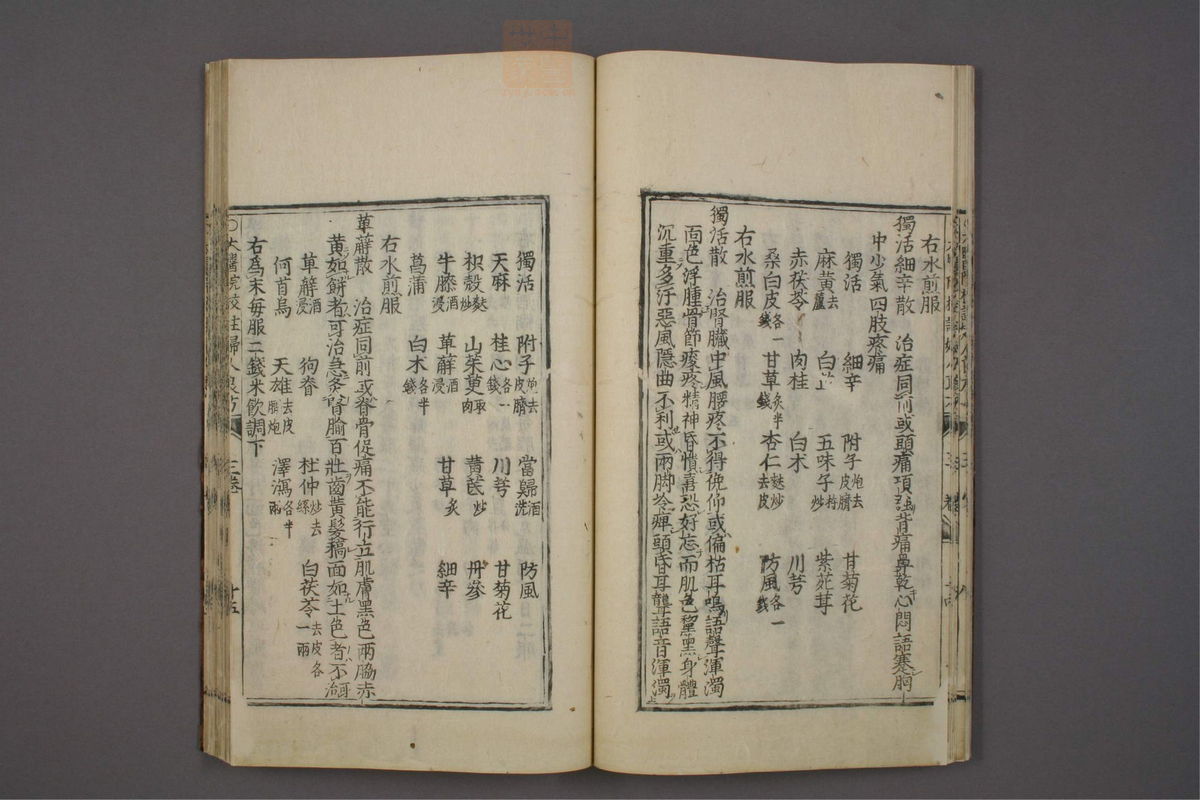 右水煎服
獨活細辛散 治症同前或頭痛項強背痛鼻乾心悶語蹇胸
中少氣四肢疼痛
獨活 細辛 附子炮去皮臍 甘菊花
麻黃去蘆 白芷 五味子杵炒 紫菀茸
赤茯苓 肉桂 白朮 川芎
桑白皮各一錢 甘草炙半錢 杏仁麩炒去皮 防風各一錢
右水煎服
獨活散 治腎臟中風腰疼不得俛仰或偏枯耳鳴語聲渾濁
面色浮腫骨節痠疼精神昏憒喜恐好忘而肌色黧黑身體
沉重多汗惡風隱曲不利或兩脚冷痺頭昏耳聾語音渾濁
獨活 附子炮去皮臍 當歸酒洗 防風
天麻 桂心各一錢 川芎 甘菊花
枳殼麩炒 山茱萸取肉 黄芪炒 丹參
牛膝酒浸 萆薢酒浸 甘草炙 細辛
菖蒲 白朮各半錢
右水煎服
萆薢散 治症同前或脊骨促痛不能行立肌膚黑色兩脇赤
黄如餅者可治急灸腎腧百壯齒黄髮稿面如土色者不治
萆薢酒浸 狗脊 杜仲炒去絲 白茯苓去皮各一兩
何首烏 天雄去皮臍炮 澤瀉各半兩
右為末每服二錢米飲調下
○太醫院校註婦人良方 三卷 十五